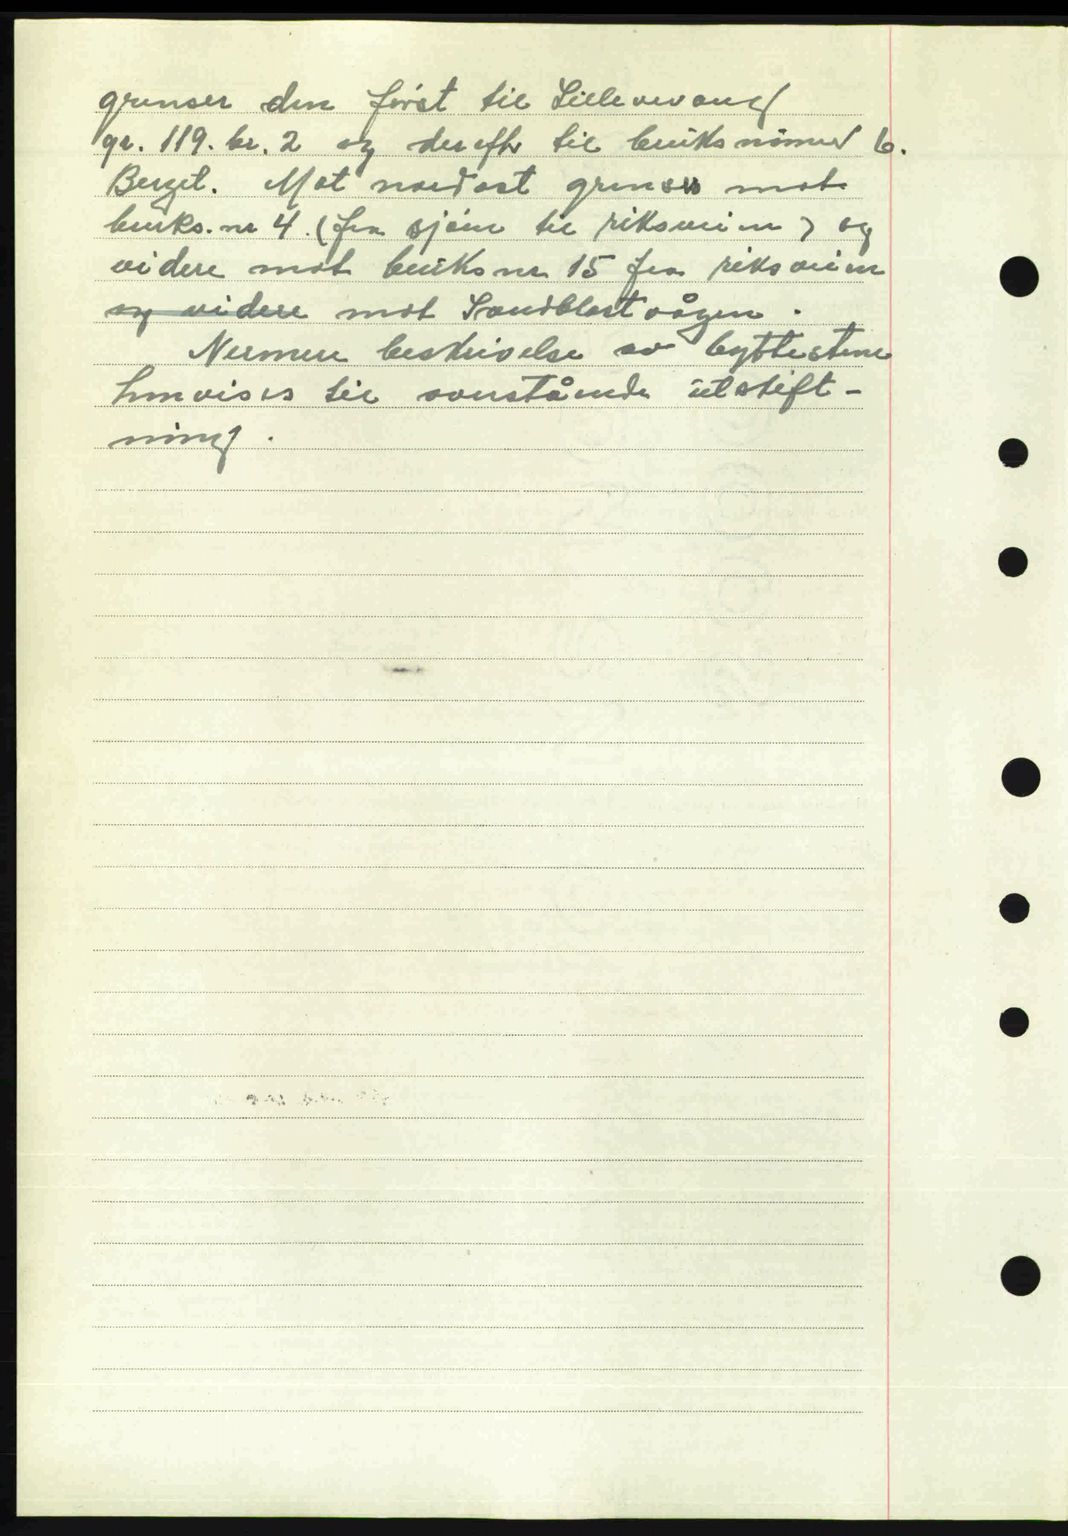 grenser den först til Lillevevang
gr. 119. br. 2 og derefter til bruksnümer 6.
Berget. Mot nordöst grenser mot
bruks. nr 4. (fra sjöen til riksveien) og
videre mot bruksnr 15 fra riksveien
og videre mot Sandblåstvågen.
Nermere beskrivelse av byttestene
henvises til ovenstående ütskift-
ning.